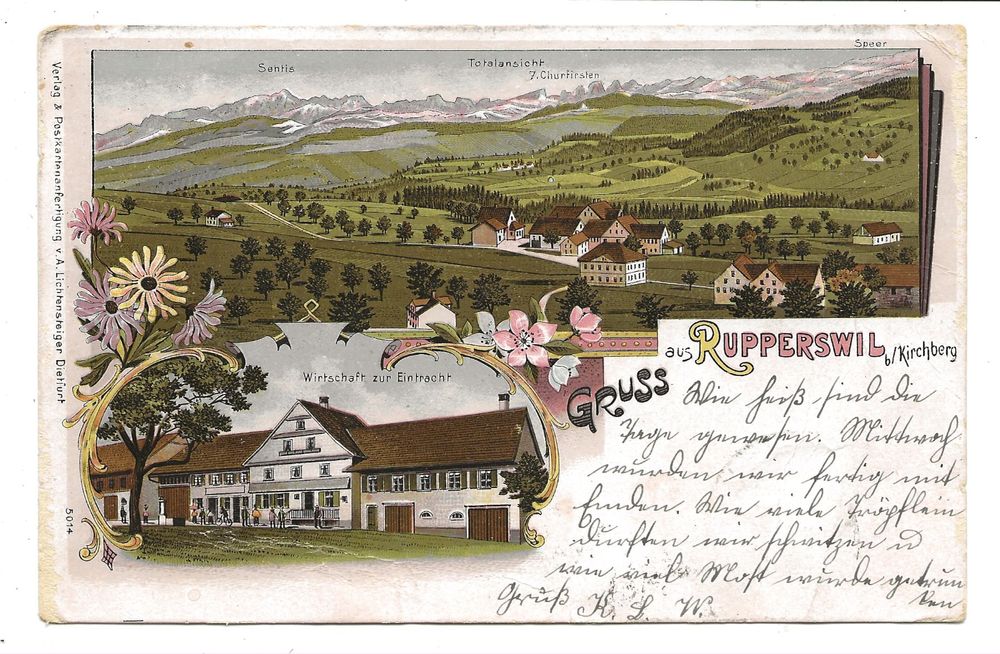 Speer
Sentis
Totalansicht
7. Churfirsten
Verlag & Postkartenanfertigung v. A. Lichtensteiger Dietfurt
GRUSS aus RUPPERSWIL b/Kirchberg
Wirtschaft zur Eintracht
5014
Wie heiß sind die
Tage gewesen. Mittwoch
wurden wir fertig mit
Emden. Wie viele Tröpflein
durften wir schwitzen u
wie viel Most wurde getrun
ken
Gruß K. L. W.